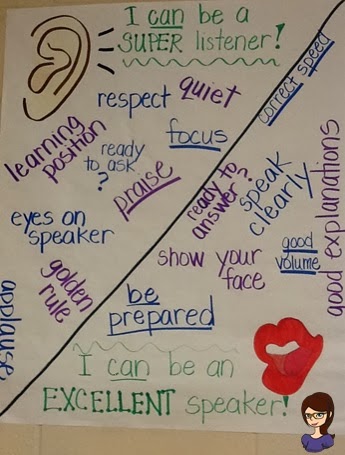 I can be a
SUPER listener!
respect
quiet
correct speed
learning
position
focus
ready
to ask
?
praise
ready to
answer?
speak
clearly
good explanations
eyes on
speaker
golden
rule
show your
face
good
volume
applause
be
prepared
I can be an
EXCELLENT speaker!